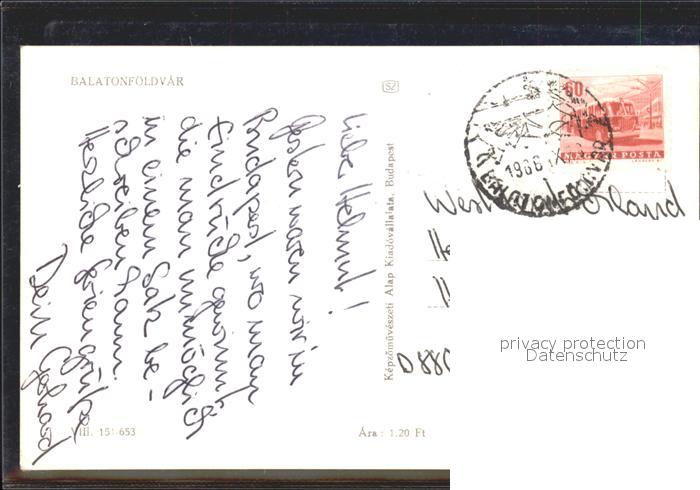 BALATONFÖLDVÁR
SZ
Liebe Helmut!
Gestern waren wir in
Budapest, wo man
Eindrücke gewinnt,
die man unmöglich
in einem Satz be-
schreiben kann.
Herzliche Grüße
Dein Gerhard
Képzőművészeti Alap Kiadóvállalata, Budapest
VIII. 151-653
Ára: 1.20 Ft
60
MAGYAR POSTA
1966
West
land
D 880
privacy protection
Datenschutz